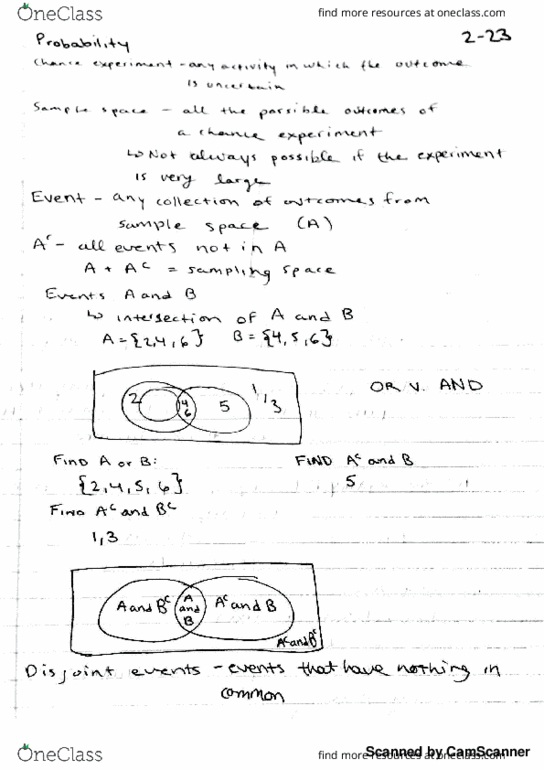 OneClass
find more resources at oneclass.com
Probability
2-23
Chance experiment - any activity in which the outcome
is uncertain
Sample space - all the possible outcomes of
a chance experiment
↳ Not always possible if the experiment
is very large
Event - any collection of outcomes from
sample space (A)
Aᶜ - all events not in A
A + Aᶜ = sampling space
Events A and B
↳ intersection of A and B
A = {2,4,6} B = {4,5,6}
2 4 6 5 1,3
OR V. AND
FIND A or B:
{2,4,5,6}
FIND Aᶜ and B
5
FIND Aᶜ and Bᶜ
1,3
A and Bᶜ
A and B
Aᶜ and B
Aᶜ and Bᶜ
Disjoint events - events that have nothing in
common
OneClass
find more resources at oneclass.com
Scanned by CamScanner